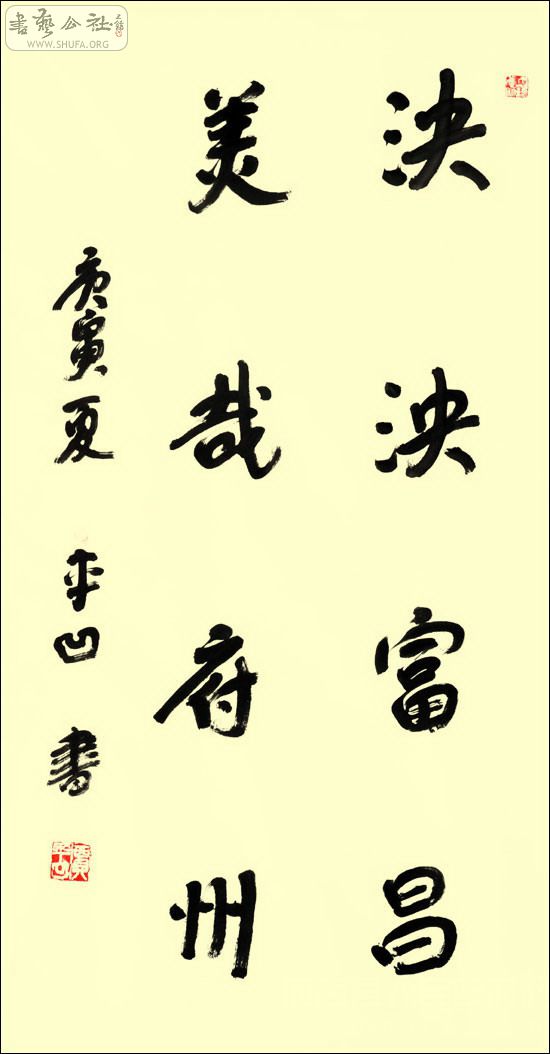 書藝公社
WWW.SHUFA.ORG
泱泱富昌
美哉府州
庚寅夏 平凹 書